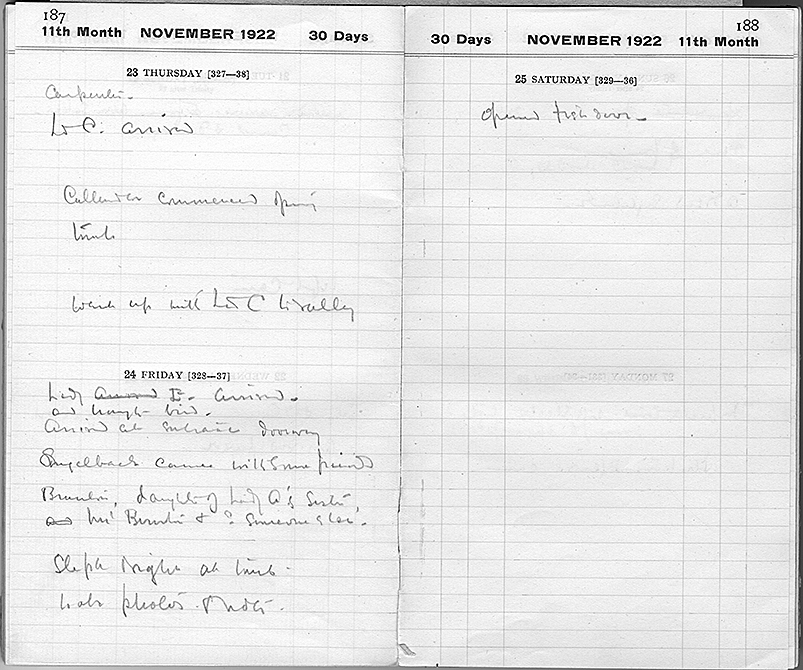 187
11th Month NOVEMBER 1922 30 Days
23 THURSDAY [327—38]
Carpenter.
Ld C. arrived
Callender commenced opening
tomb
went up with Ld C to valley
24 FRIDAY [328—37]
Lady arrived E. arrived.
and brought bird.
Arrived at entrance doorway
Engelbach came with some friends
daughter of Lady A's sister,
and & ? Someone else.
Slept night at tomb.
photos. & notes.
188
30 Days NOVEMBER 1922 11th Month
25 SATURDAY [329—36]
Opened first door.